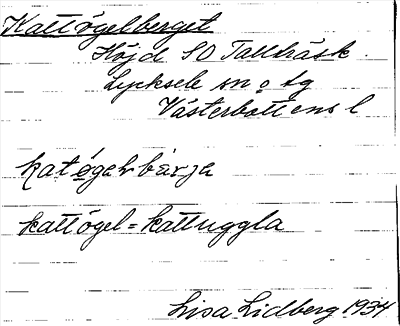 Kattögelberget
Höjd SO Tallträsk.
Lycksele sn o tg
Västerbottens l
katögəlbärja
kattögel = kattuggla
Lisa Lidberg 1934